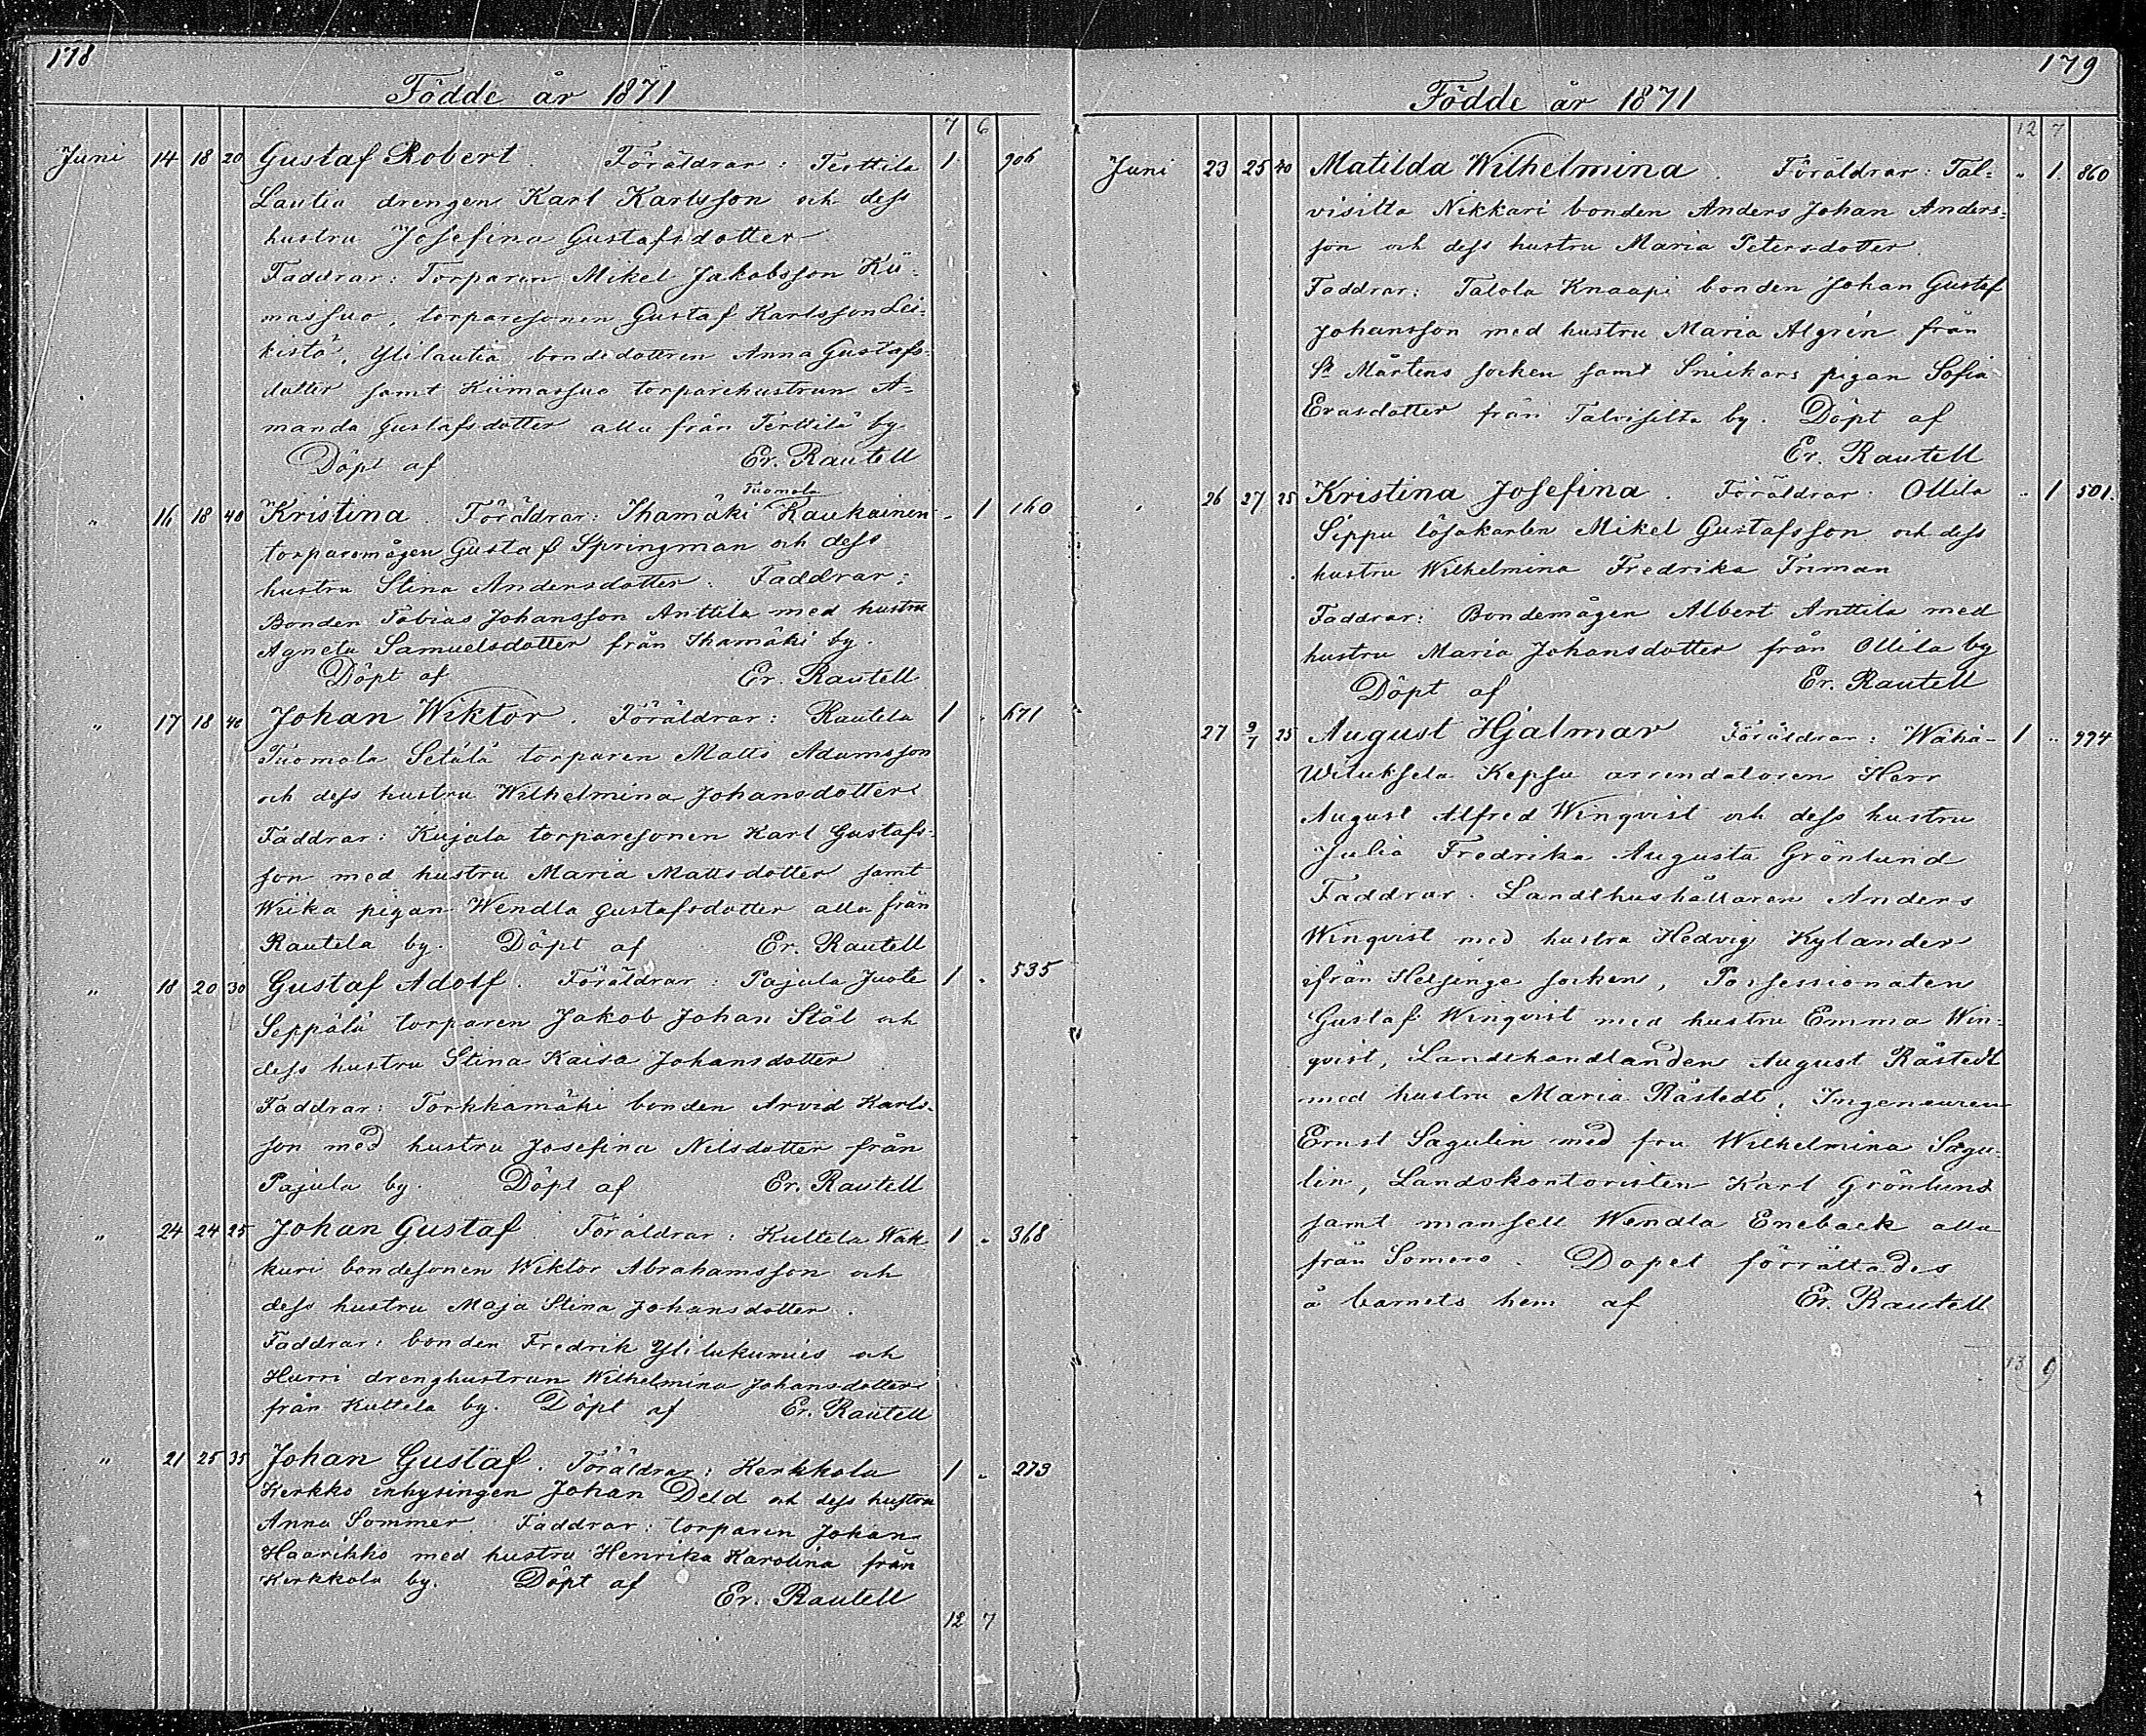 178
Födde år 1871
7 6
Juni 14 18 20 Gustaf Robert. Föräldrar: Terttila 1 906
Lautia drengen Karl Karlsson och dess
hustru Josefina Gustafsdotter
Faddrar: Torparen Mikel Jakobsson Kii-
massuo, torparesonen Gustaf Karlsson Lei-
kistö, Ylilautia bondedottren Anna Gustafs-
dotter samt Kiimassuo torparehustrun A-
manda Gustafsdotter alla från Terttilä by
Döpt af Er. Rautell
Tuomola
" 16 18 40 Kristina. Föräldrar: Ihamäki Kaukainen " 1 160
torparemågen Gustaf Springman och dess
hustru Stina Andersdotter. Faddrar:
Bonden Tobias Johansson Anttila med hustru
Agneta Samuelsdotter från Ihamäki by.
Döpt af Er. Rautell
" 17 18 40 Johan Wiktor. Föräldrar: Rautela 1 " 671
Tuomola Setälä torparen Matts Adamsson
och dess hustru Wilhelmina Johansdotter
Faddrar: Kujala torparesonen Karl Gustafs-
son med hustru Maria Mattsdotter samt
Wiika pigan Wendla Gustafsdotter alla från
Rautela by. Döpt af Er. Rautell
" 18 20 30 Gustaf Adolf. Föräldrar: Pajula Juote 1 " 535
Seppälä torparen Jakob Johan Stål och
dess hustru Stina Kaisa Johansdotter
Faddrar: Torkkamäki bonden Arvid Karls-
son med hustru Josefina Nilsdotter från
Pajula by. Döpt af Er. Rautell
" 24 24 25 Johan Gustaf. Föräldrar: Kultela Wäk- 1 " 368
kuri bondesonen Wiktor Abrahamsson och
dess hustru Maja Stina Johansdotter.
Faddrar: bonden Fredrik Ylilukumies och
Hurri drenghustrun Wilhelmina Johansdotter
från Kultela by. Döpt af Er. Rautell
" 21 25 35 Johan Gustaf. Föräldrar: Kerkkola 1 " 273
Kerkko inhysingen Johan Deld och dess hustru
Anna Sommer. Faddrar: torparen Johan
Haarikko med hustru Henrika Karolina från
Kerkkola by. Döpt af
Er. Rautell
12 7
179
Födde år 1871
12 7
Juni 23 25 40 Matilda Wilhelmina. Föräldrar: Tal- " 1. 860
visilta Nikkari bonden Anders Johan Anders-
son och dess hustru Maria Petersdotter.
Faddrar: Talola Knaapi bonden Johan Gustaf
Johansson med hustru Maria Algrén från
St Mårtens socken samt Snickars pigan Sofia
Erasdotter från Talvisilta by. Döpt af
Er. Rautell
" 26 27 25 Kristina Josefina. Föräldrar: Ollila " 1 501.
Sippu lösakarlen Mikel Gustafsson och dess
hustru Wilhelmina Fredrika Friman
Faddrar: Bondemågen Albert Anttila med
hustru Maria Johansdotter från Ollila by
Döpt af Er. Rautell
27 9/7 25 August Hjalmar Föräldrar: Wähä- 1 " 994
Wiluksela Kepsu arrendatoren Herr
August Alfred Winqvist och dess hustru
Julia Fredrika Augusta Grönlund
Faddrar: Landthushållaren Anders
Winqvist med hustru Hedvig Kylander
från Helsinge socken, Possessionaten
Gustaf Winqvist med hustru Emma Win-
qvist, Landthandlanden August Råstedt
med hustru Maria Råstedt, Ingeneuren
Ernst Sagulin med fru Wilhelmina Sagu-
lin, Landskontoristen Karl Grönlund
samt mamsell Wendla Eneback alla
från Somero. Dopet förrättades
å barnets hem af Er. Rautell
13 9